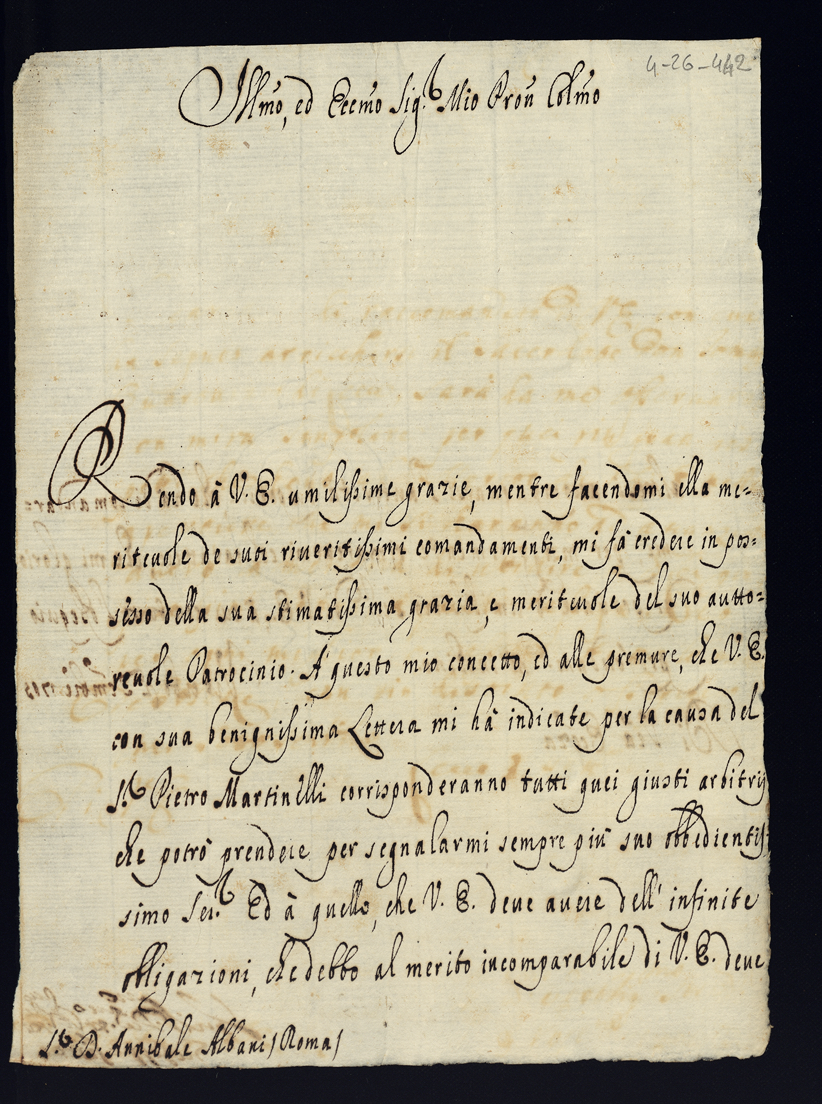 4-26-442
Illmo, ed Eccmo Sig.r Mio Pron Colmo
Rendo à V. E. umilissime grazie, mentre facendomi ella me=
riteuole de suoi riueritissimi comandamenti, mi fà credere in pos=
sesso della sua stimatissima grazia, e meriteuole del suo autto=
reuole Patrocinio. A questo mio concetto, ed alle premure, che V. E.
con sua benignissima Lettera mi hà indicate per la causa del
S.r Pietro Martinelli corrisponderanno tutti quei giusti arbitrij
che potrò prendere per segnalarmi sempre più suo obbedientis
simo Ser.r Ed à quello, che V. E. deue auere dell' infinite
obligazioni, che debbo al merito incomparabile di V. E. deue
S.r D. Annibale Albani / Roma /